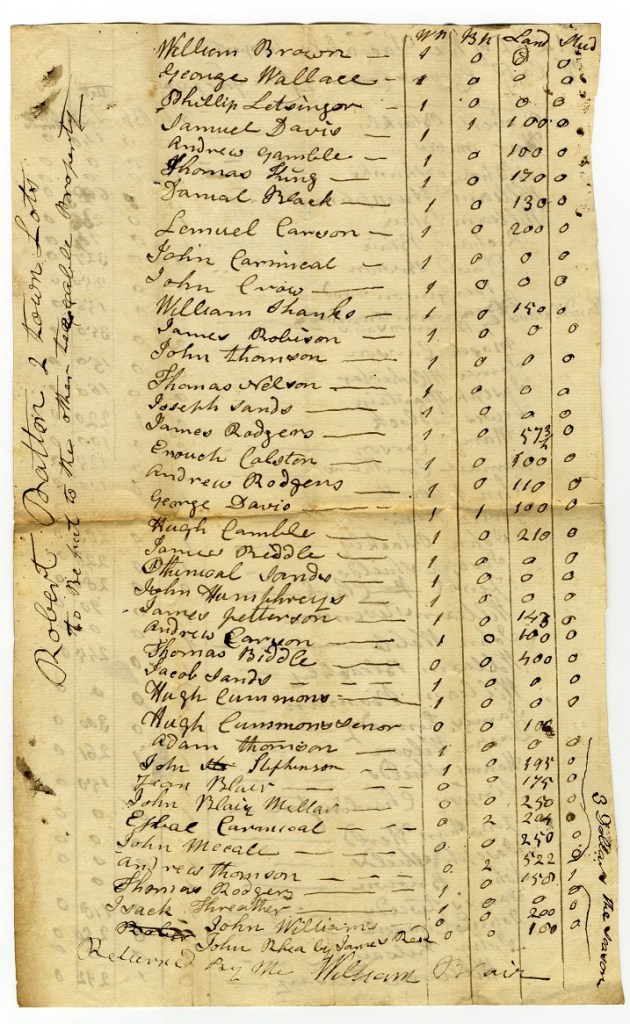 Wh Bh Land Stud
William Brown — 1 0 0 0
George Wallace — 1 0 0 0
Phillip Letsinger 1 0 0 0
Samuel Davis — 1 1 100 0
Andrew Gamble — 1 0 100 0
Thomas King — 1 0 170 0
Danial Black — 1 0 130 0
Lemuel Carson — 1 0 200 0
John Carmical — 1 0 0 0
John Crow — 1 0 0 0
William Shanks — 1 0 150 0
James Robison — 1 0 0 0
John Thomson — 1 0 0 0
Thomas Nelson — 1 0 0 0
Joseph Sands — 1 0 0 0
James Rodgers — 1 0 573 0
Enouch Calston — 1 0 100 0
Andrew Rodgers 1 0 110 0
George Davis — 1 1 100 0
Hugh Camble — 1 0 210 0
James Reddle — 1 0 0 0
Sands — 1 0 0 0
John Humphreys — 1 0 0 0
James Petterson — 1 0 0
Andrew Carson — 1 0 100 0
Thomas Biddle — 0 0 400 0
Jacob Sands — 1 0 0 0
Hugh Cummons — 1 0 0 0
Hugh Cummons Senor 0 0 106 0
Adam Thomson — 1 0 0 0
John Stephinson — 1 0 195 0
Jean Blair — 0 0 175 0
John Blair Millar — 0 0 250 0
Carmical — 0 2 204
John Mecall — 0 0 250 0
Andrew Thomson — 0 2 522 0
Thomas Rodgers — 1 0 158 1
Isack Threather — 1 0 0 0
John Williams 0 0 200 0
John Rhea by James Rhea 0 0 100 0
Returned By Me William Blair
Robert Batton 2 town Lots
to Be put to the other taxable Property
3 Dollars the Season